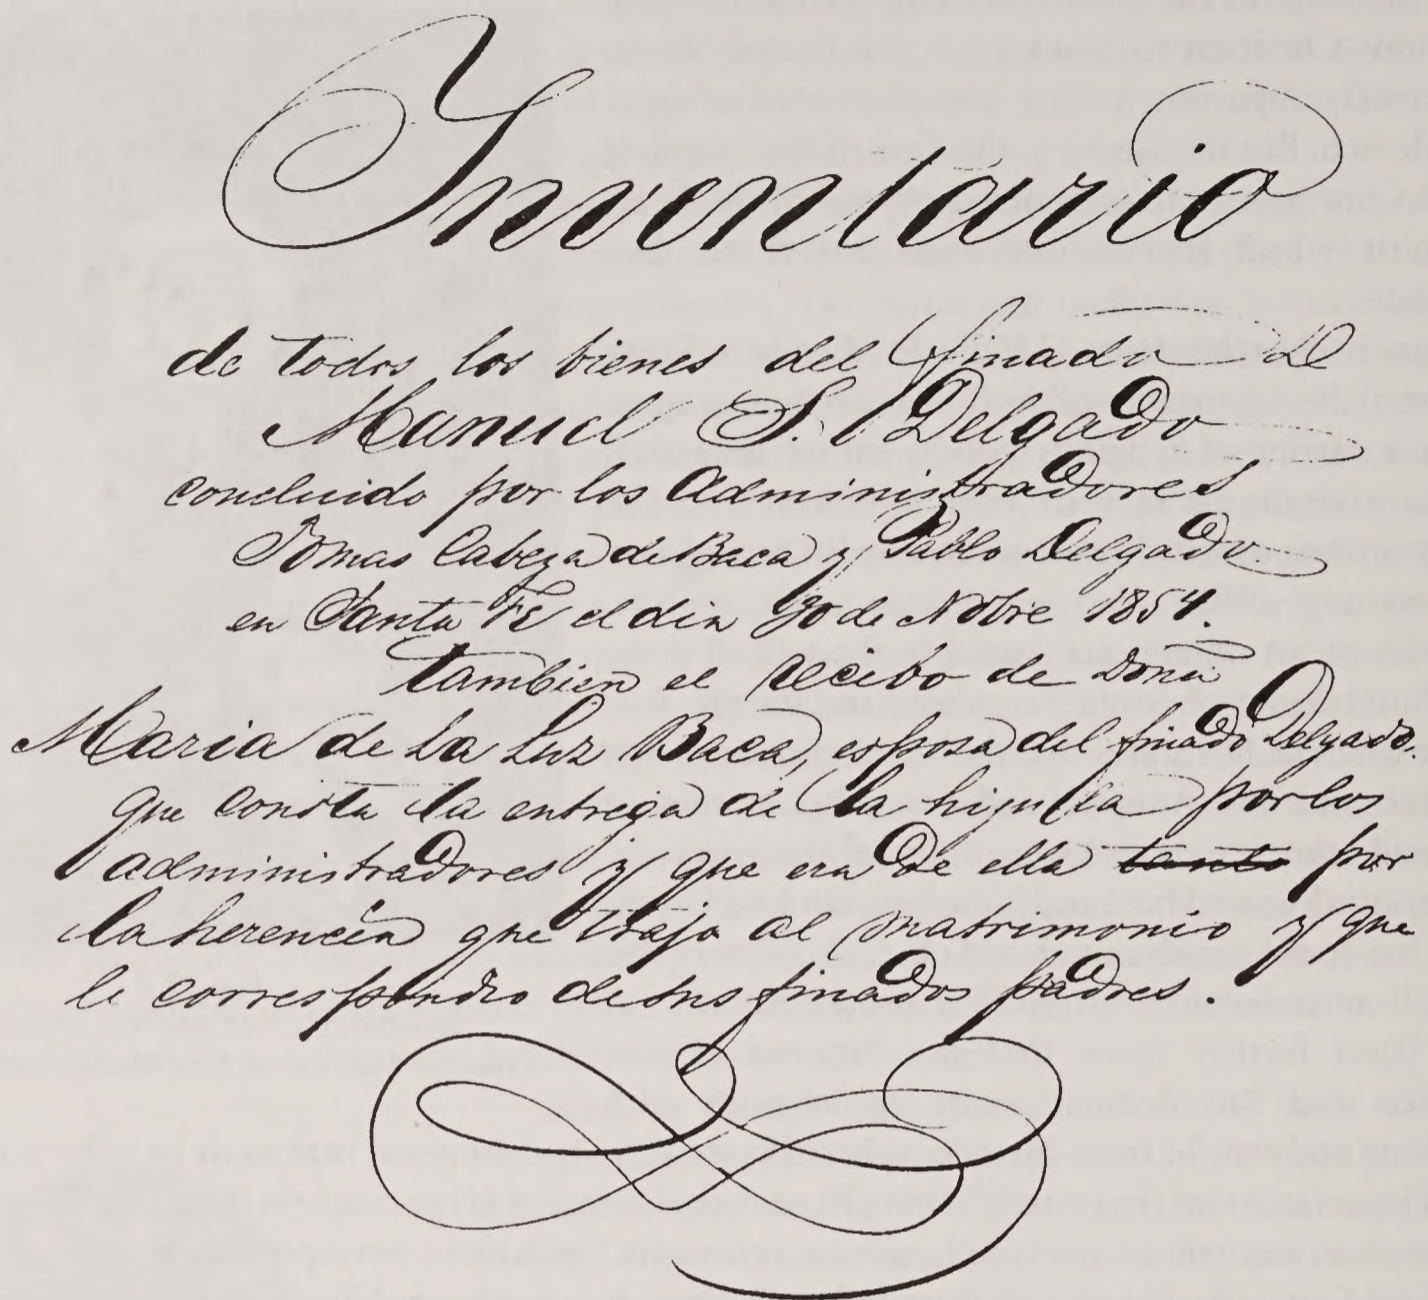 Inventario
de todos los bienes del finado D
Manuel S. Delgado
concluido por los Administradores
Tomas Cabeza de Baca y Pablo Delgado.
en Santa Fé el dia 30 de Nobre 1854.
tambien el recibo de Doña
Maria de la Luz Baca, esposa del finado Delgado.
que consta la entrega de la hijuela por los
administradores y que era de ella tanto por
la herencia que trajo al matrimonio y que
le correspondio de sus finados padres.